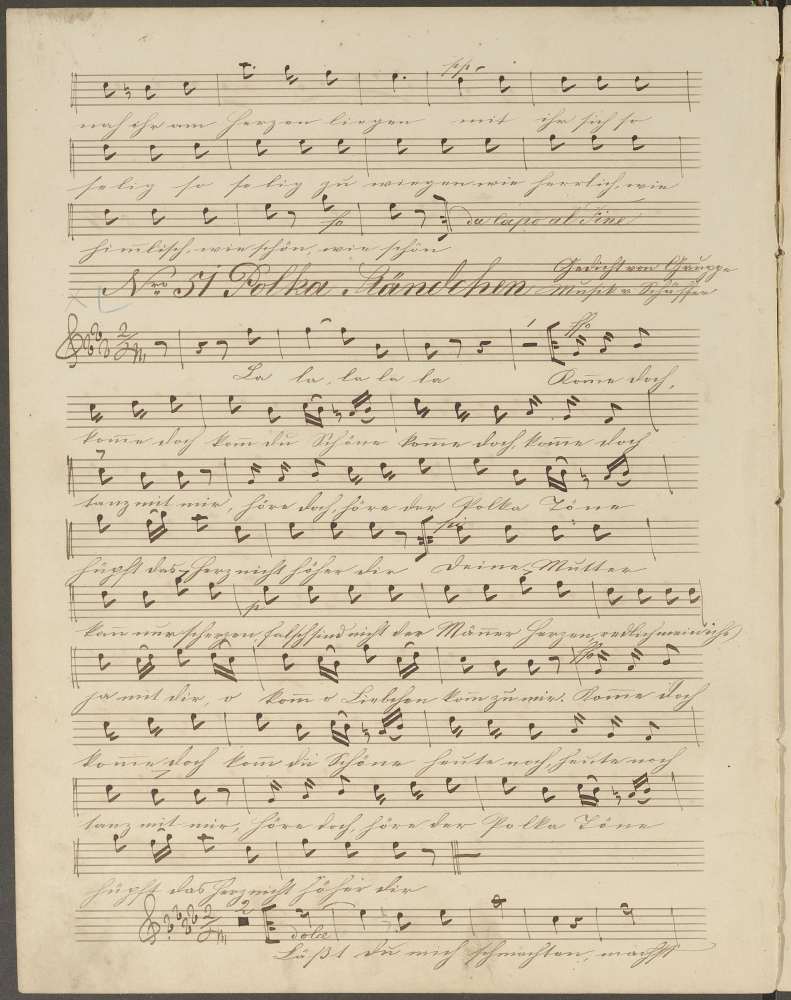 pp
nah ihr am Herzen liegen mit ihr sich so
selig so selig zu wiegen wie herrlich, wie
da Capo al Fine
himlisch, wie schön, wie schön
Nro 51 Polka Ständchen Gedicht von Gruppe
Musik v. Schäffer
La la, la la la Kom̄e doch,
kom̄e doch kom̄ du Schöne kom̄e doch, kom̄e doch
tanz mit mir, höre doch, höre der Polka Töne
hüpft das Herz nicht höher dir Deine Mutter
p
kan̄ nur scherzen falsch sind nicht der Män̄er Herzen, redlich mein ichs
ja mit dir, o kom̄ o Liebchen kom̄ zu mir. Kom̄e doch
kom̄e doch kom̄ du Schöne heute noch, heute noch
tanz mit mir, höre doch, höre der Polka Töne
hüpft das Herz nicht höher dir
2
dolce
Läßt du mich schmachten, machst